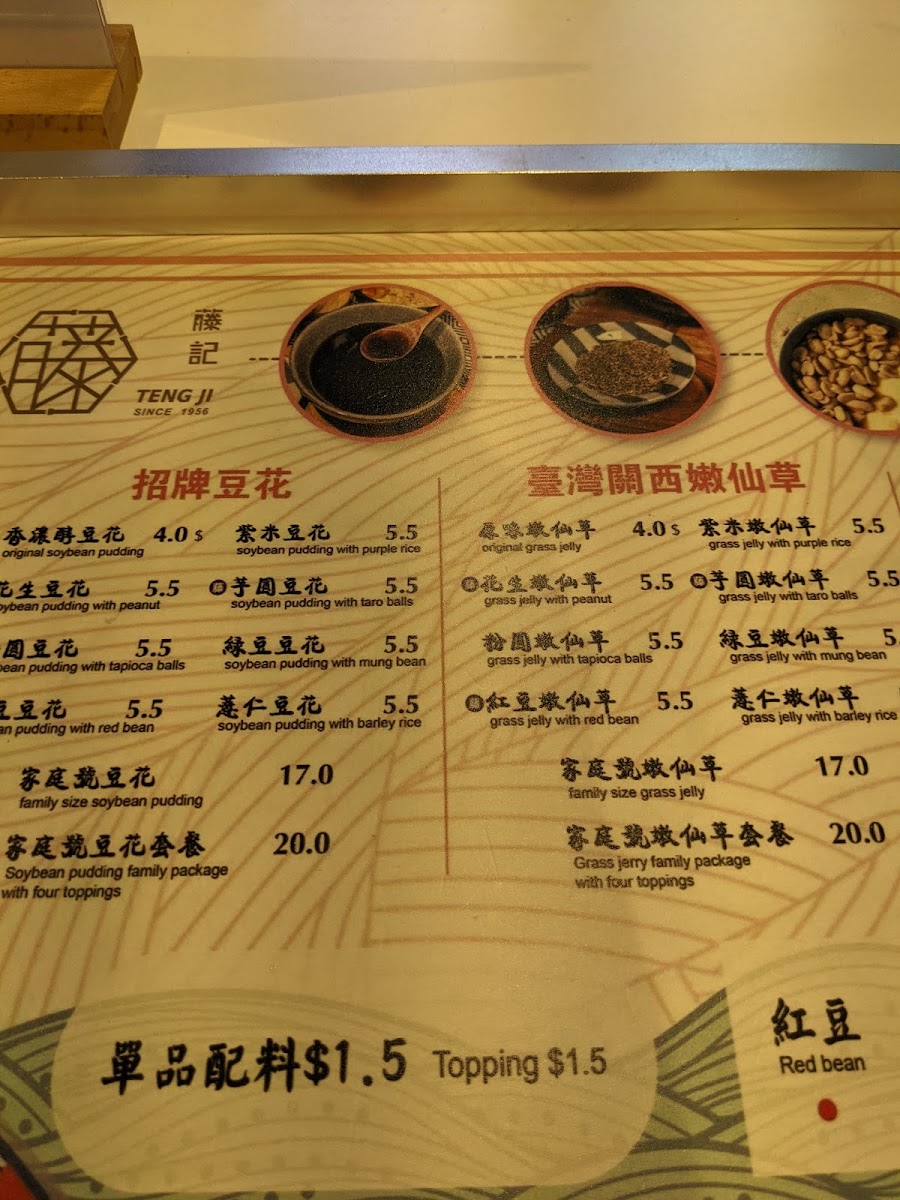 藤
藤
記
TENG JI
SINCE 1956
招牌豆花
香濃醇豆花 4.0 $ 紫米豆花 5.5
original soybean pudding soybean pudding with purple rice
花生豆花 5.5 芋圓豆花 5.5
soybean pudding with peanut soybean pudding with taro balls
圓豆花 5.5 綠豆豆花 5.5
bean pudding with tapioca balls soybean pudding with mung bean
豆豆花 5.5 薏仁豆花 5.5
pudding with red bean soybean pudding with barley rice
家庭號豆花 17.0
family size soybean pudding
家庭號豆花套餐 20.0
Soybean pudding family package
with four toppings
臺灣關西嫩仙草
原味嫩仙草 4.0 $ 紫米嫩仙草 5.5
original grass jelly grass jelly with purple rice
花生嫩仙草 5.5 芋圓嫩仙草 5.5
grass jelly with peanut grass jelly with taro balls
粉圓嫩仙草 5.5 綠豆嫩仙草 5.
grass jelly with tapioca balls grass jelly with mung bean
紅豆嫩仙草 5.5 薏仁嫩仙草
grass jelly with red bean grass jelly with barley rice
家庭號嫩仙草 17.0
family size grass jelly
家庭號嫩仙草套餐 20.0
Grass jerry family package
with four toppings
單品配料$1.5 Topping $1.5
紅豆
Red bean